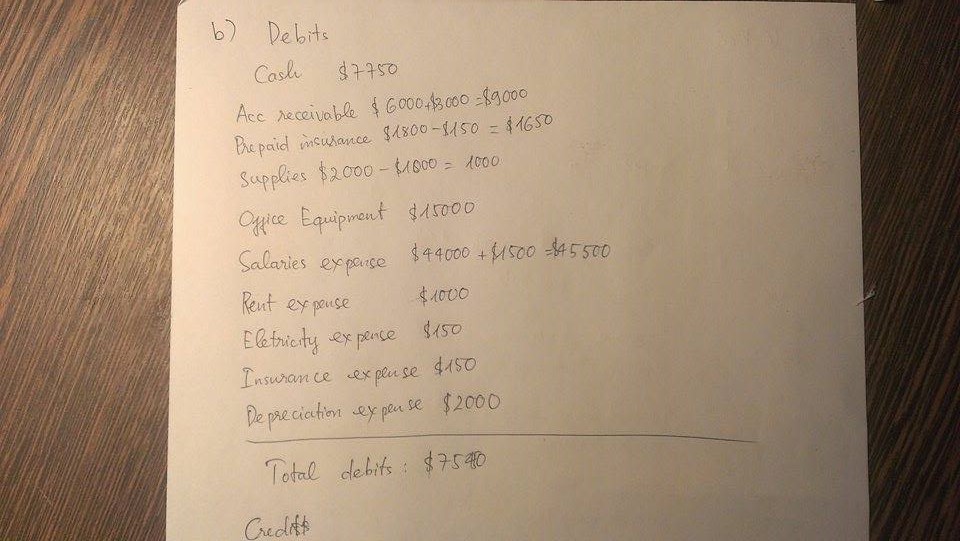 b) Debits
Cash $7750
Acc receivable $6000+$3000=$9000
Prepaid insurance $1800-$150 = $1650
Supplies $2000-$1000= 1000
Office Equipment $15000
Salaries expense $44000+$1500=$45500
Rent expense $1000
Eletricity expense $150
Insurance expense $150
Depreciation expense $2000
Total debits: